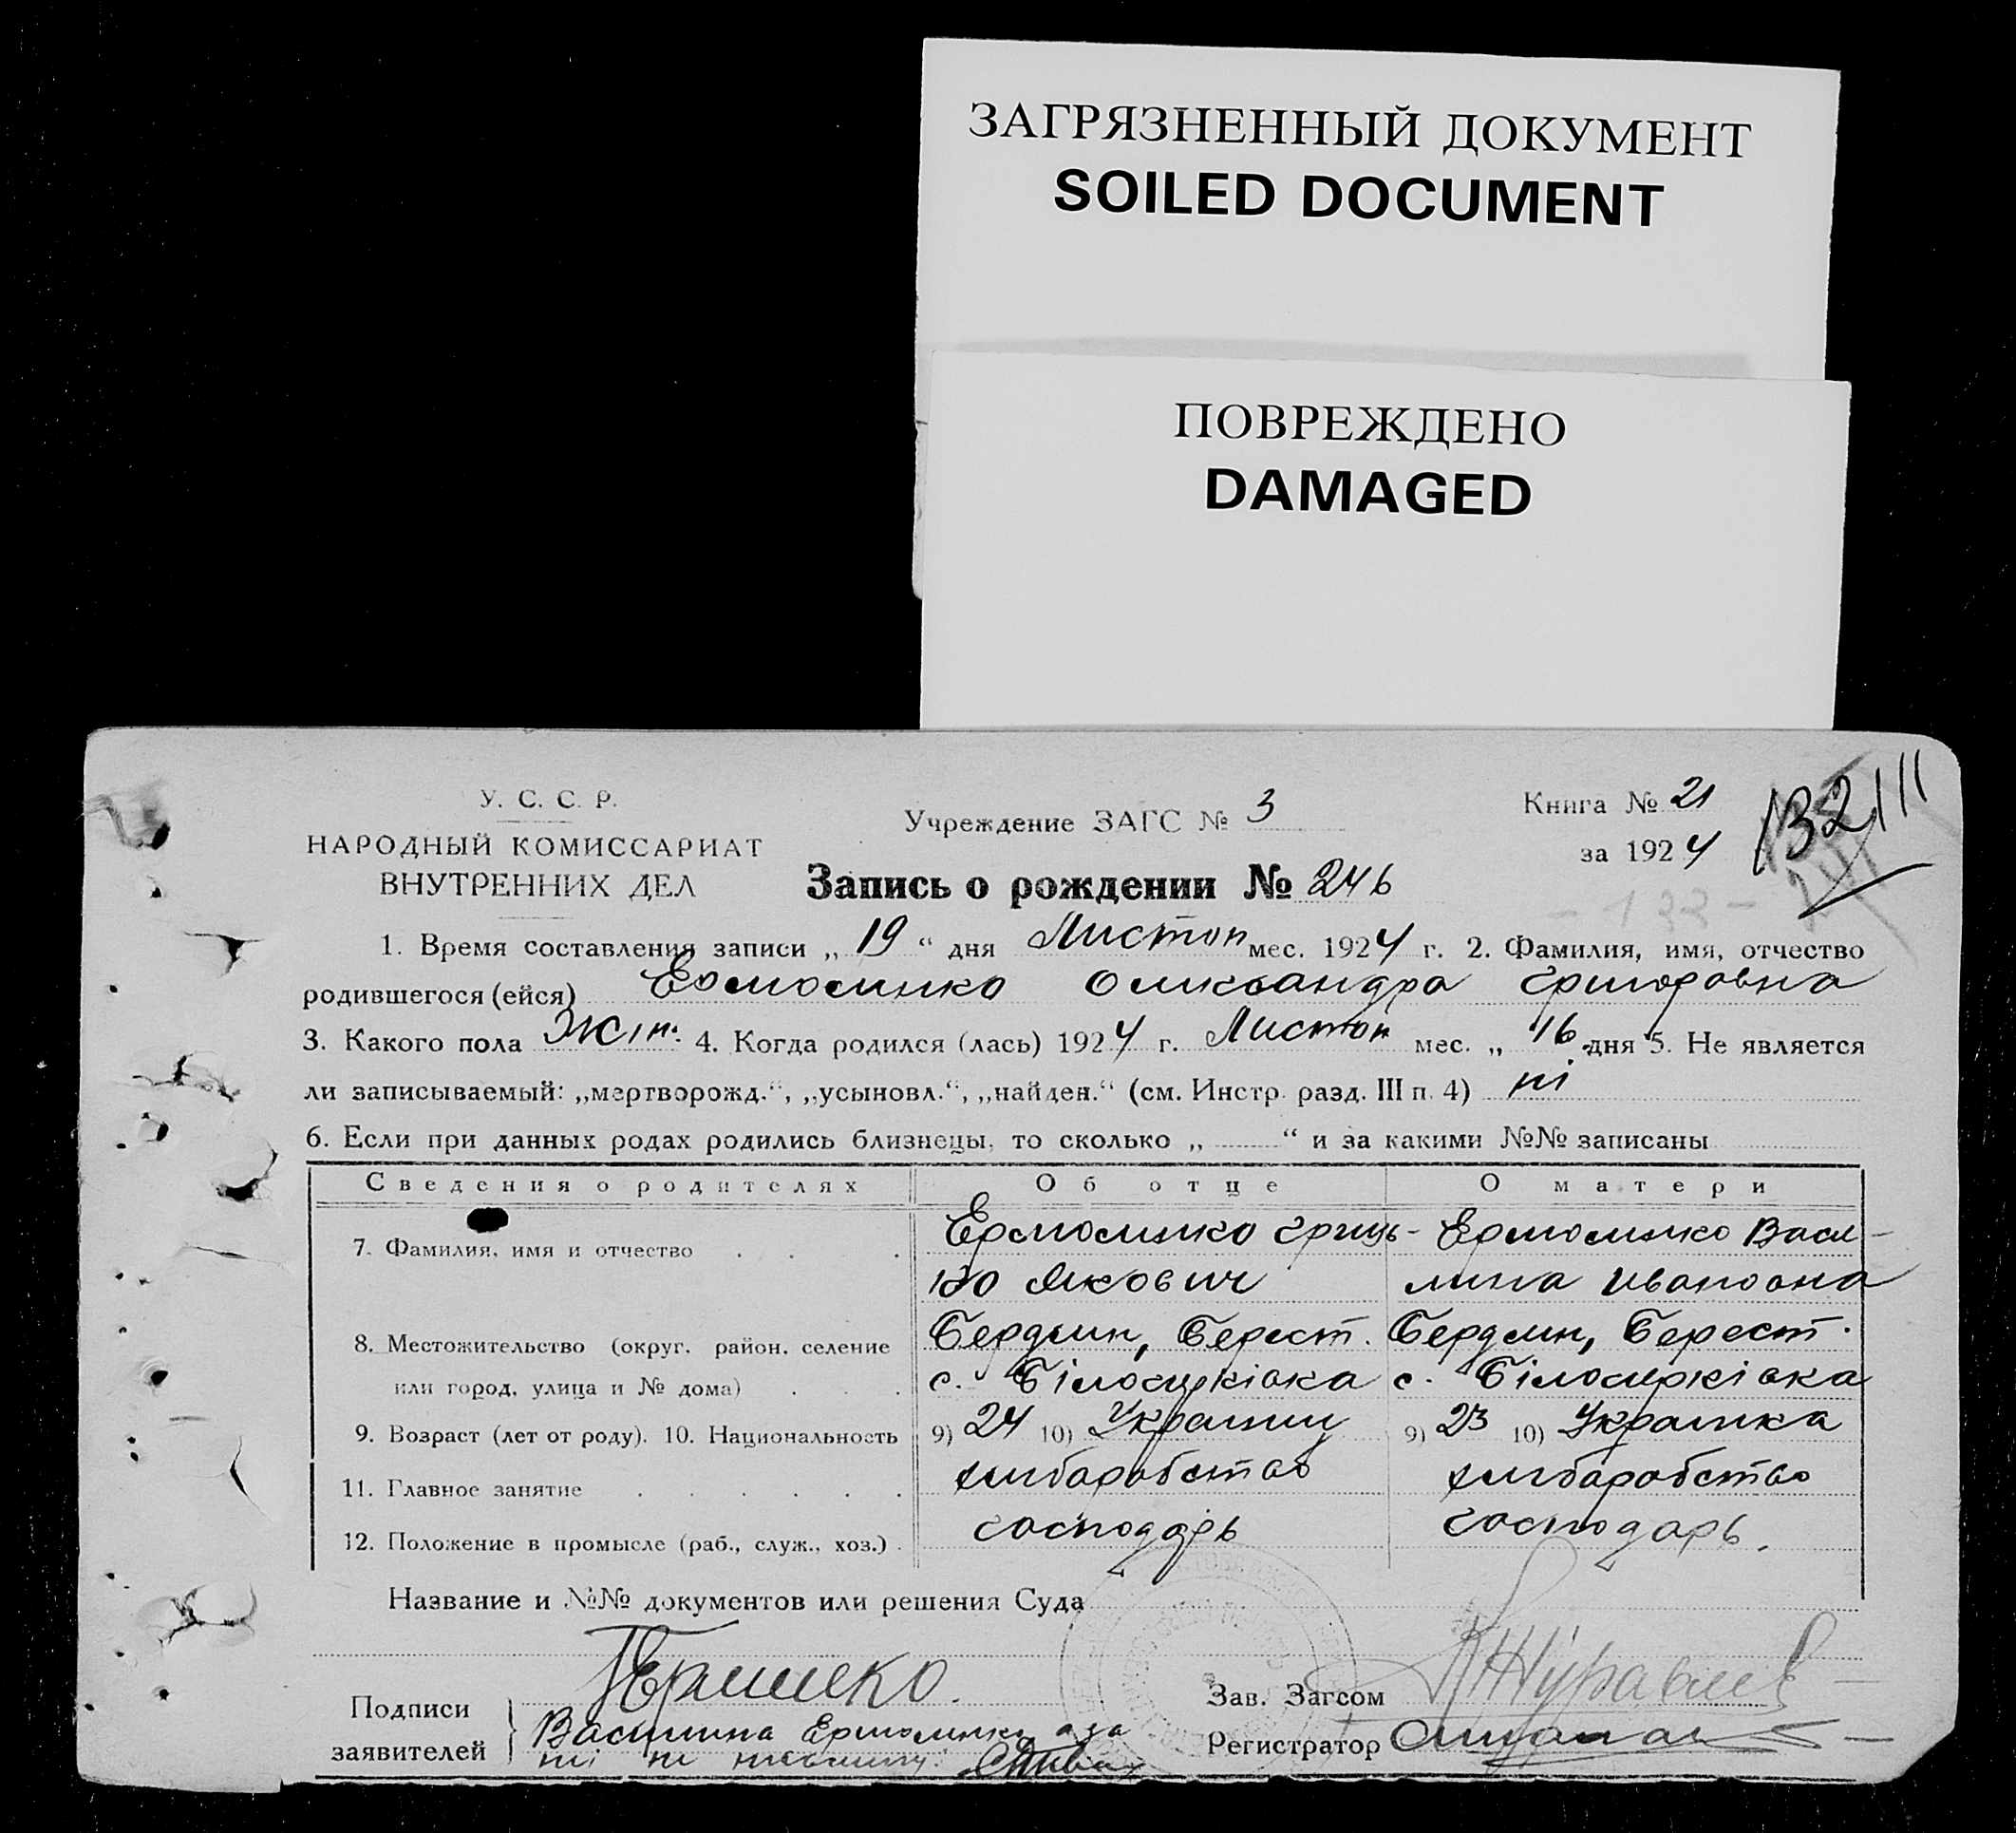 ЗАГРЯЗНЕННЫЙ ДОКУМЕНТ
SOILED DOCUMENT
ПОВРЕЖДЕНО
DAMAGED
У. С. С. Р.
НАРОДНЫЙ КОМИССАРИАТ
ВНУТРЕННИХ ДЕЛ
Учреждение ЗАГС № 3
Книга № 21
за 1924
132
Запись о рождении № 246
1. Время составления записи „ 19 “ дня Листоп мес. 1924 г. 2. Фамилия, имя, отчество
родившегося (ейся) Ермоленко Олександра Григоровна
3. Какого пола Жін. 4. Когда родился (лась) 1924 г. Листоп мес. „ 16 дня 5. Не является
ли записываемый: „мертворожд.“, „усыновл.“, „найден.“ (см. Инстр. разд. III п. 4) ні
6. Если при данных родах родились близнецы, то сколько „ “ и за какими №№ записаны
Сведения о родителях Об отце О матери
7. Фамилия, имя и отчество Ермоленко Гриць- Ермоленко Васи-
ко Якович лина Ивановна
8. Местожительство (округ, район, селение Бердян, Берест. Бердян, Берест.
или город, улица и № дома) с. Білоцерківка с. Білоцерківка
9. Возраст (лет от роду). 10. Национальность 9) 24 10) Украинц 9) 23 10) Украинка
11. Главное занятие хлібаробство хлібаробство
12. Положение в промысле (раб., служ., хоз.) господарь господарь.
Название и №№ документов или решения Суда
Подписи
заявителей
Василина Ермоленко а за
Зав. Загсом Журавлев
Регистратор